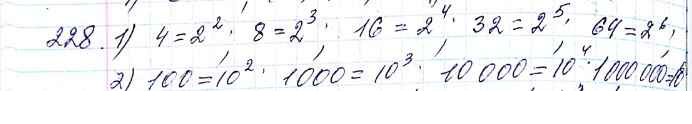 228. 1) 4 = 2², 8 = 2³, 16 = 2⁴, 32 = 2⁵, 64 = 2⁶,
2) 100 = 10², 1000 = 10³, 10 000 = 10⁴, 1000 000 = 10